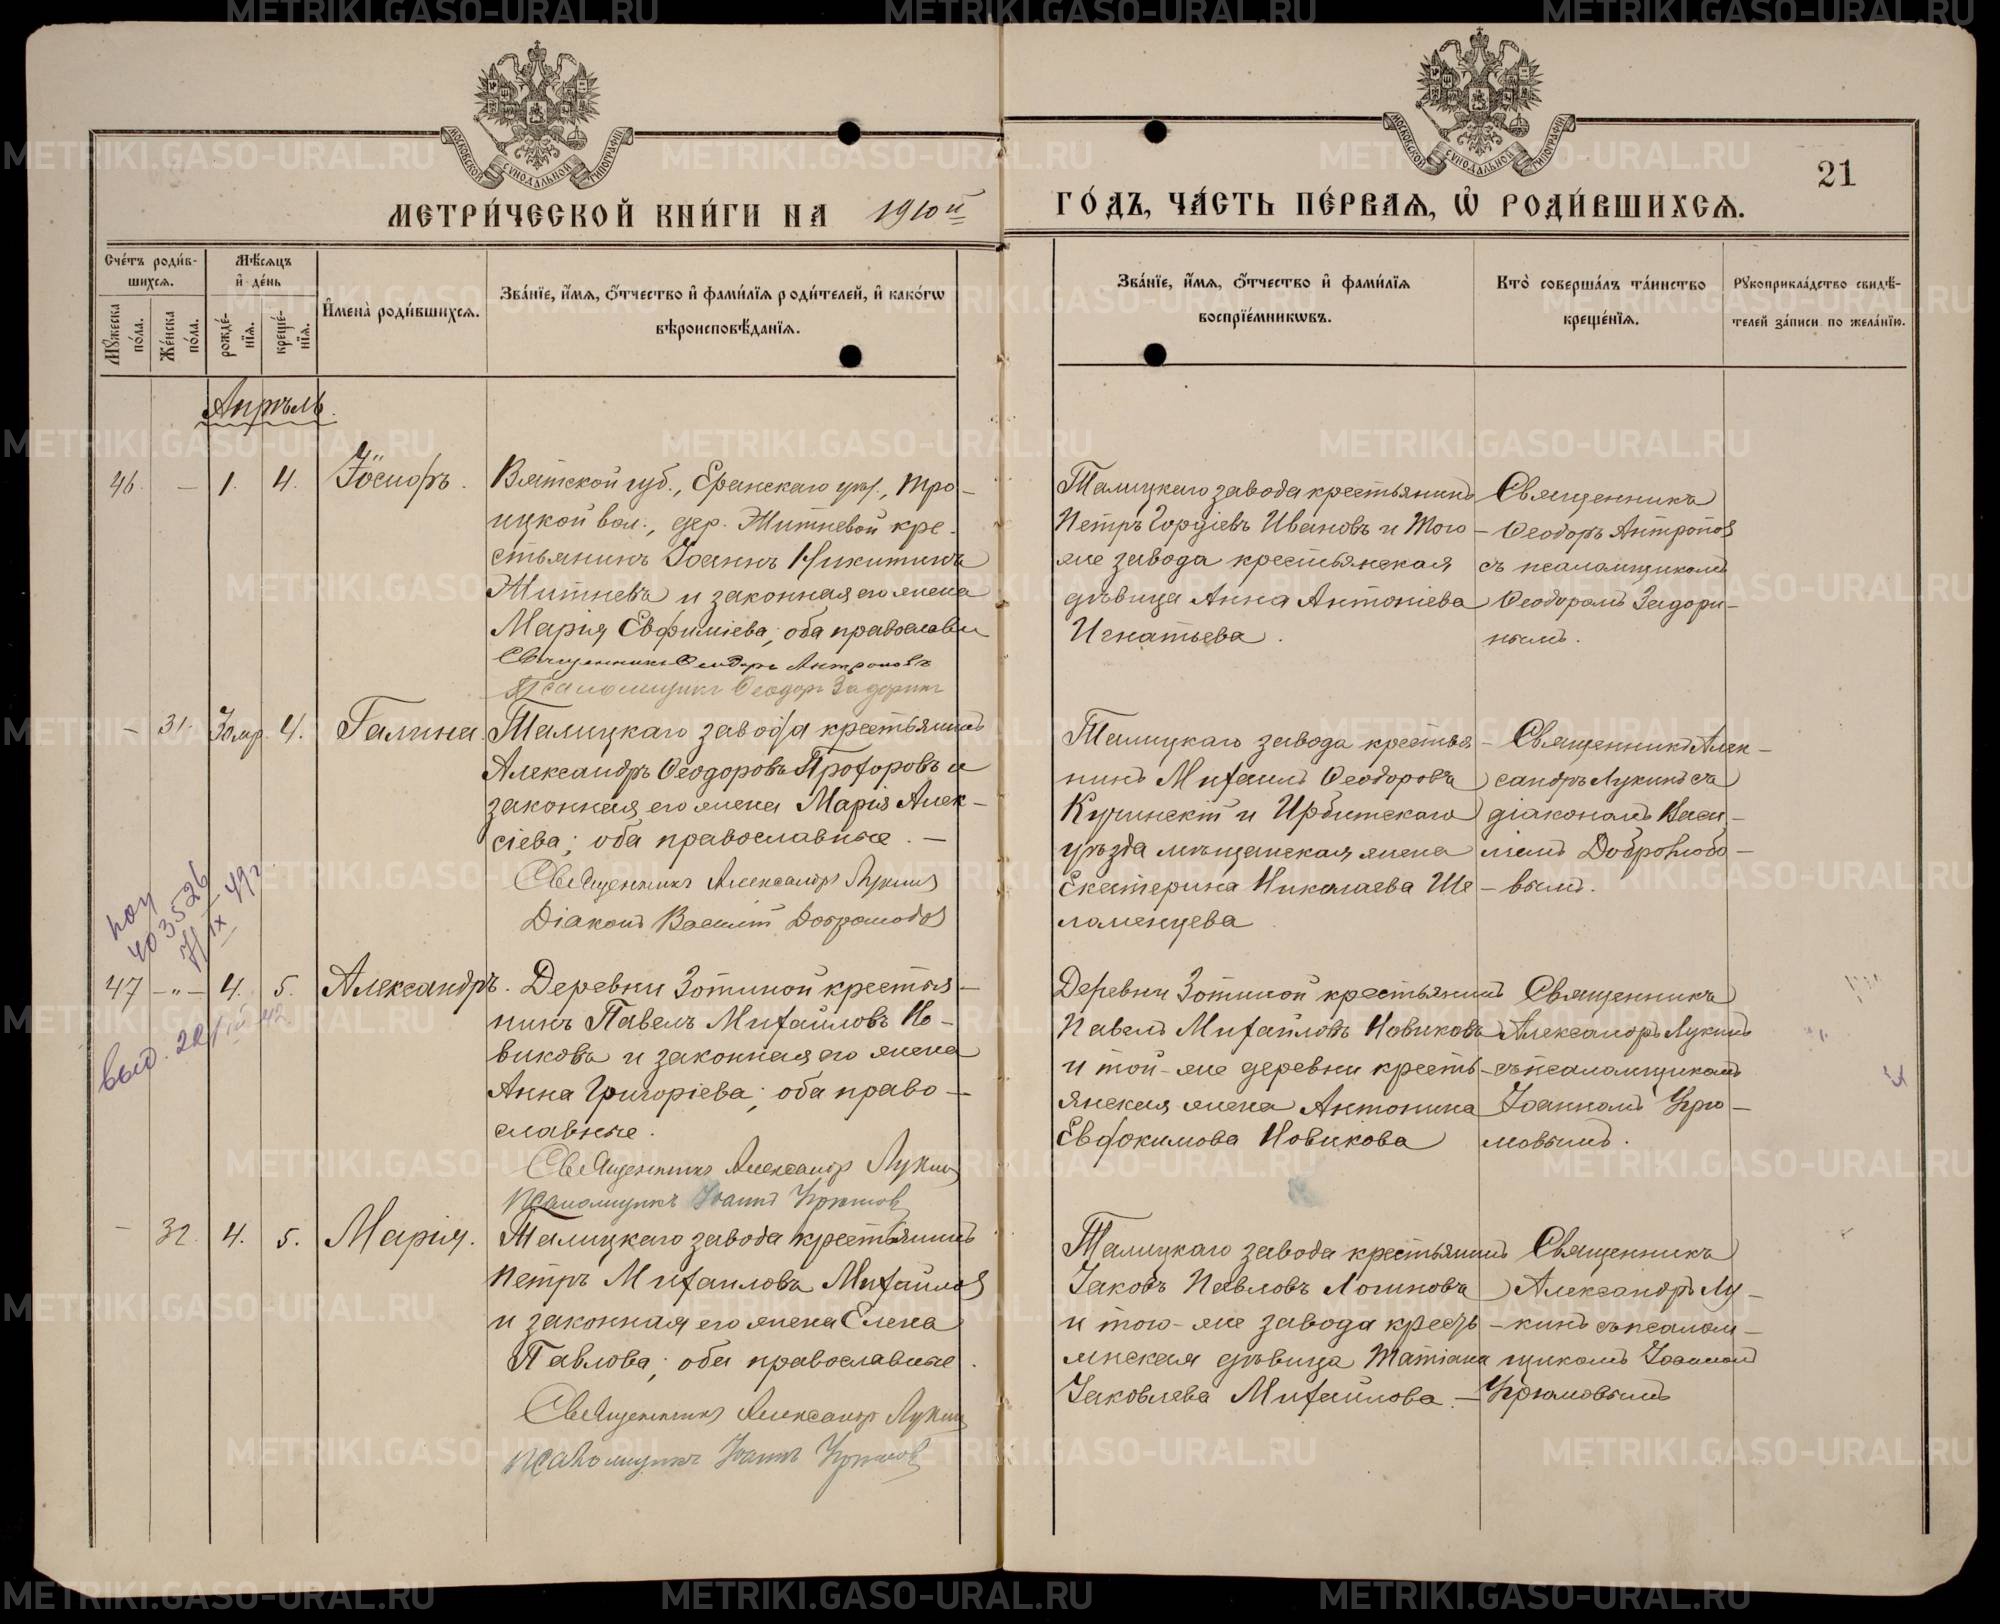 МЕТРИ́ЧЕСКОЙ КНИ́ГИ НА 1910й
ГО́ДЪ, ЧА́СТЬ ПЕ́РВАѦ, Ѡ҆ РОДИ́ВШИХСѦ.
21
МОСКОВСКОЙ СѴНОДАЛЬНОЙ ТИПОГРАФІИ
МОСКОВСКОЙ СѴНОДАЛЬНОЙ ТИПОГРАФІИ
Сче́тъ роди́в-
шихсѧ.
Мꙋжеска по́ла.
Же́нска по́ла.
Мѣ́сѧцъ
и҆ де́нь
рожде́-
нїѧ.
креще́-
нїѧ.
И҆мена̀ роди́вшихсѧ.
Зва́нїе, и҆́мѧ, ѻ҆́тчество и҆ фами́лїѧ роди́телей, и҆ како́гѡ
вѣроисповѣ́данїѧ.
Зва́нїе, и҆́мѧ, ѻ҆́тчество и҆ фами́лїѧ
воспрїе́мникѡвъ.
Кто̀ соверша́лъ та́инство
креще́нїѧ.
Рꙋкоприкла́дство свидѣ́-
телей за́писи по жела́нїю.
Апрѣль.
46. — 1. 4. Іосифъ.
Вятской губ., Еранскаго уѣз., Тро-
ицкой вол., дер. Житневой кре-
стьянинъ Іоаннъ Никитинъ
Житневъ и законная его жена
Марія Евфиміева; оба православн
Священникъ Ѳеодоръ Антроповъ
Псаломщикъ Ѳеодоръ Задоринъ
Талицкаго завода крестьянинъ
Петръ Гордіевъ Ивановъ и того
же завода крестьянская
дѣвица Анна Антоніева
Игнатьева.
Священникъ
Ѳеодоръ Антропов
съ псаломщикомъ
Ѳеодоромъ Задори-
нымъ.
— 31. 30 мр. 4. Галина.
Талицкаго завода крестьянинъ
Александръ Ѳеодоровъ Прохоровъ и
законная его жена Марія Алек-
сіева; оба православные. —
Священникъ Александръ Лукинъ
Діаконъ Василій Добролюбов
Талицкаго завода крестья-
нинъ Михаилъ Ѳеодоровъ
Кучинскій и Ирбитскаго
уѣзда мѣщанская жена
Екатерина Николаева Ше-
ламенцева
Священникъ Алек-
сандръ Лукинъ съ
діакономъ Васи-
ліемъ Добролюбо-
вымъ.
403526
7/IX – 49г
47 —"— 4. 5. Александръ.
выд. 22/IV 42
Деревни Зотиной крестья-
нинъ Павелъ Михайловъ Но-
виковъ и законная его жена
Анна Григоріева; оба право-
славные.
Священникъ Александръ Лукинъ
Псаломщикъ Іоаннъ Угрюмов
Деревни Зотиной крестьянинъ
Павелъ Михайловъ Новиковъ
и той-же деревни кресть-
янская жена Антонина
Евфокимова Новикова
Священникъ
Александръ Лукинъ
съ псаломщикомъ
Іоанномъ Угрю-
мовымъ.
— 32. 4. 5. Марія.
Талицкаго завода крестьянинъ
Петръ Михаиловъ Михайлов
и законная его жена Елена
Павлова; оба православные.
Священникъ Александръ Лукинъ
Псаломщикъ Іоаннъ Угрюмов
Талицкаго завода крестьянинъ
Іаковъ Павловъ Логиновъ
и того-же завода кресть-
янская дѣвица Татіана
Іаковлева Михайлова. —
Священникъ
Александръ Лу-
кинъ съ псалом-
щикомъ Іоанном
Угрюмовымъ
METRIKI.GASO-URAL.RU